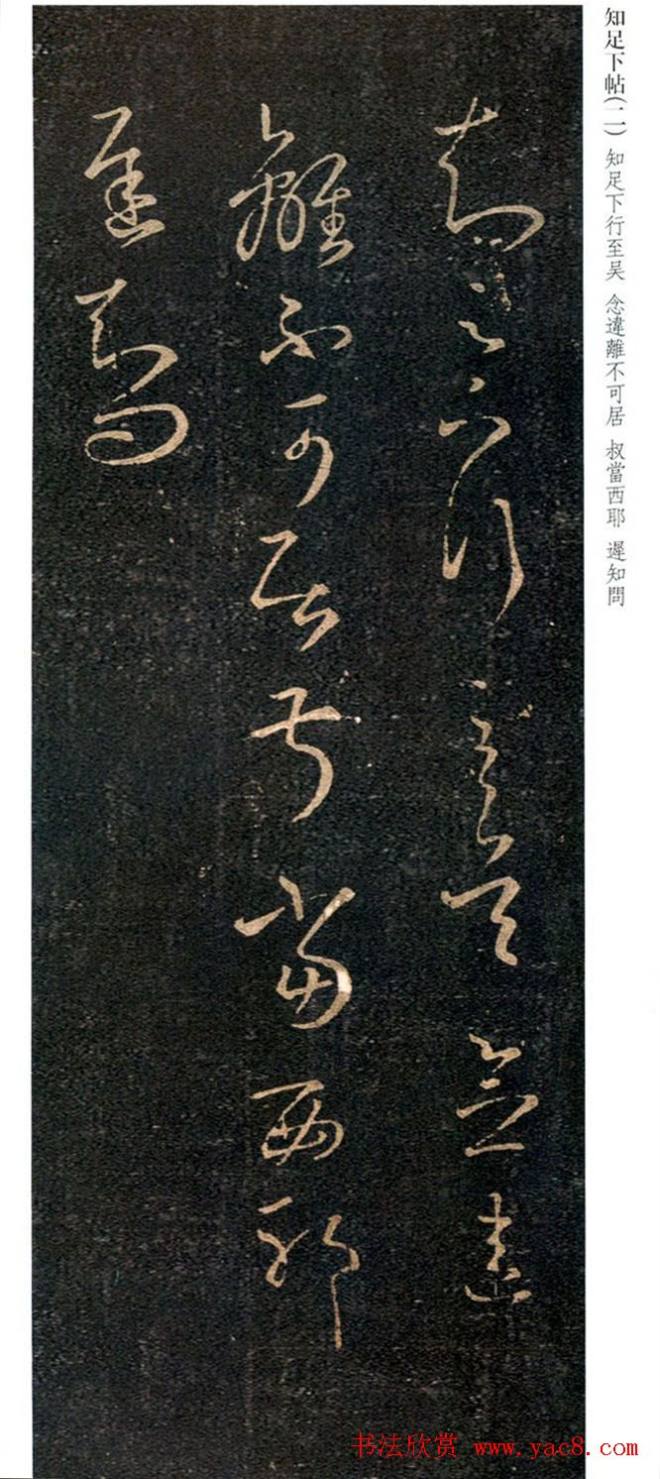 知足下帖(二) 知足下行至吴 念違離不可居 叔當西耶 遲知問
知足下行至吴念違
離不可居叔當西耶
遲知問
书法欣赏 www.yac8.com